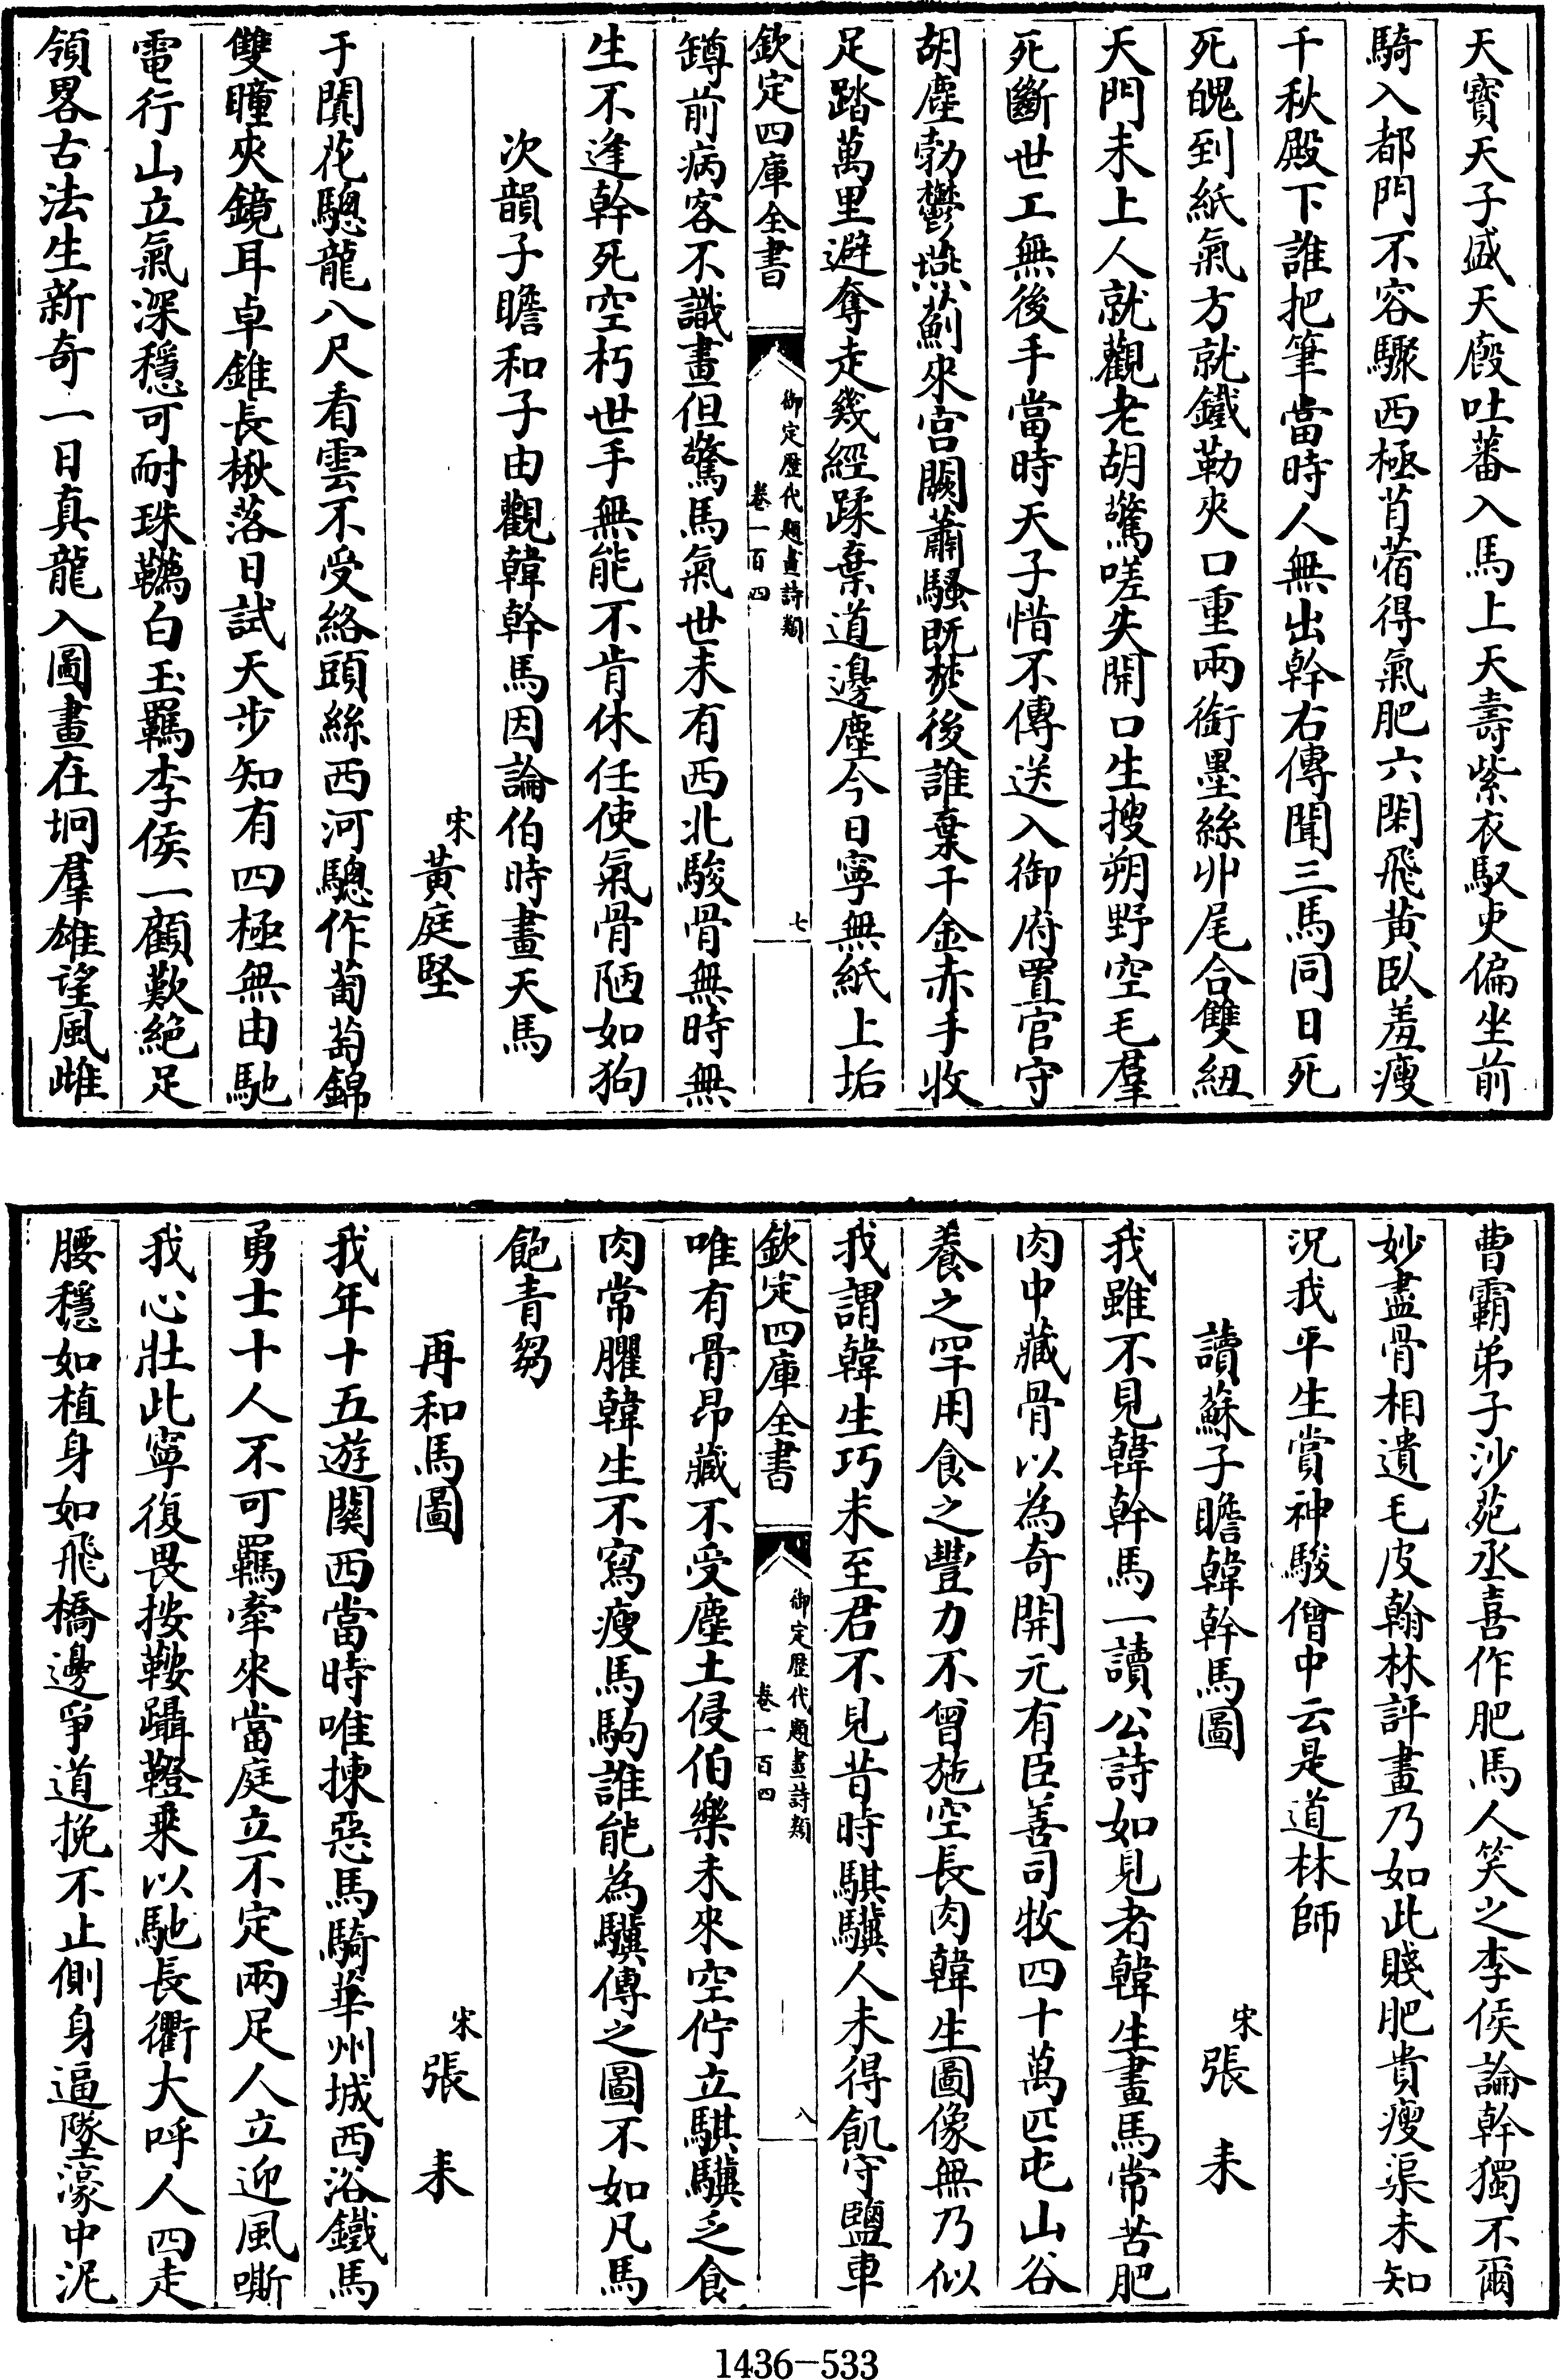 天寶天子盛天廐吐蕃入馬上天壽紫衣馭吏偏坐前
騎入都門不容驟西極苜蓿得氣肥六閑飛黄臥羞瘦
千秋殿下誰把筆當時人無出幹右傳聞三馬同日死
死魄到紙氣方就鐵勒夾口重兩銜墨絲丱尾合雙紐
天門未上人就觀老胡驚嗟失開口生搜朔野空毛羣
死斷世工無後手當時天子惜不傳送入御府置官守
胡塵勃鬱燕薊來宫闕蕭騷既焚後誰棄千金赤手收
足踏萬里避奪走幾經蹂棄道邊塵今日寧無紙上垢
欽定四庫全書
御定歴代題畫詩類
卷一百四
七
罇前病客不識畫但驚馬氣世未有西北駿骨無時無
生不逢幹死空朽世手無能不肯休任使氣骨陋如狗
次韻子瞻和子由觀韓幹馬因論伯時畫天馬
宋黄庭堅
于闐花驄龍八尺看雲不受絡頭絲西河驄作萄萄錦
雙瞳夾鏡耳卓錐長楸落日試天步知有四極無由馳
電行山立氣深穩可耐珠韉白玉羈李侯一顧歎絶足
領畧古法生新奇一日真龍入圖畫在坰羣雄望風雌
曹霸弟子沙苑丞喜作肥馬人笑之李侯論幹獨不爾
妙盡骨相遺毛皮翰林評畫乃如此賤肥貴瘦渠未知
況我平生賞神駿僧中云是道林師
讀蘇子瞻韓幹馬圖
宋張耒
我雖不見韓幹馬一讀公詩如見者韓生畫馬常苦肥
肉中藏骨以為奇開元有臣善司牧四十萬匹屯山谷
養之罕用食之豐力不曾施空長肉韓生圖像無乃似
我謂韓生巧未至君不見昔時騏驥人未得飢守鹽車
欽定四庫全書
御定歴代題畫詩類
卷一百四
八
唯有骨昂藏不受塵土侵伯樂未來空佇立騏驥乏食
肉常臞韓生不寫瘦馬駒誰能為驥傳之圖不如凡馬
飽青芻
再和馬圖
宋張耒
我年十五遊關西當時唯揀惡馬騎華州城西洛鐵馬
勇士十人不可羈牽來當庭立不定兩足人立迎風嘶
我心壯此寧復畏按鞍躡鐙乗以馳長衢大呼人四走
腰穩如植身如飛橋邊爭道挽不止側身逼墜濠中泥
1436—533